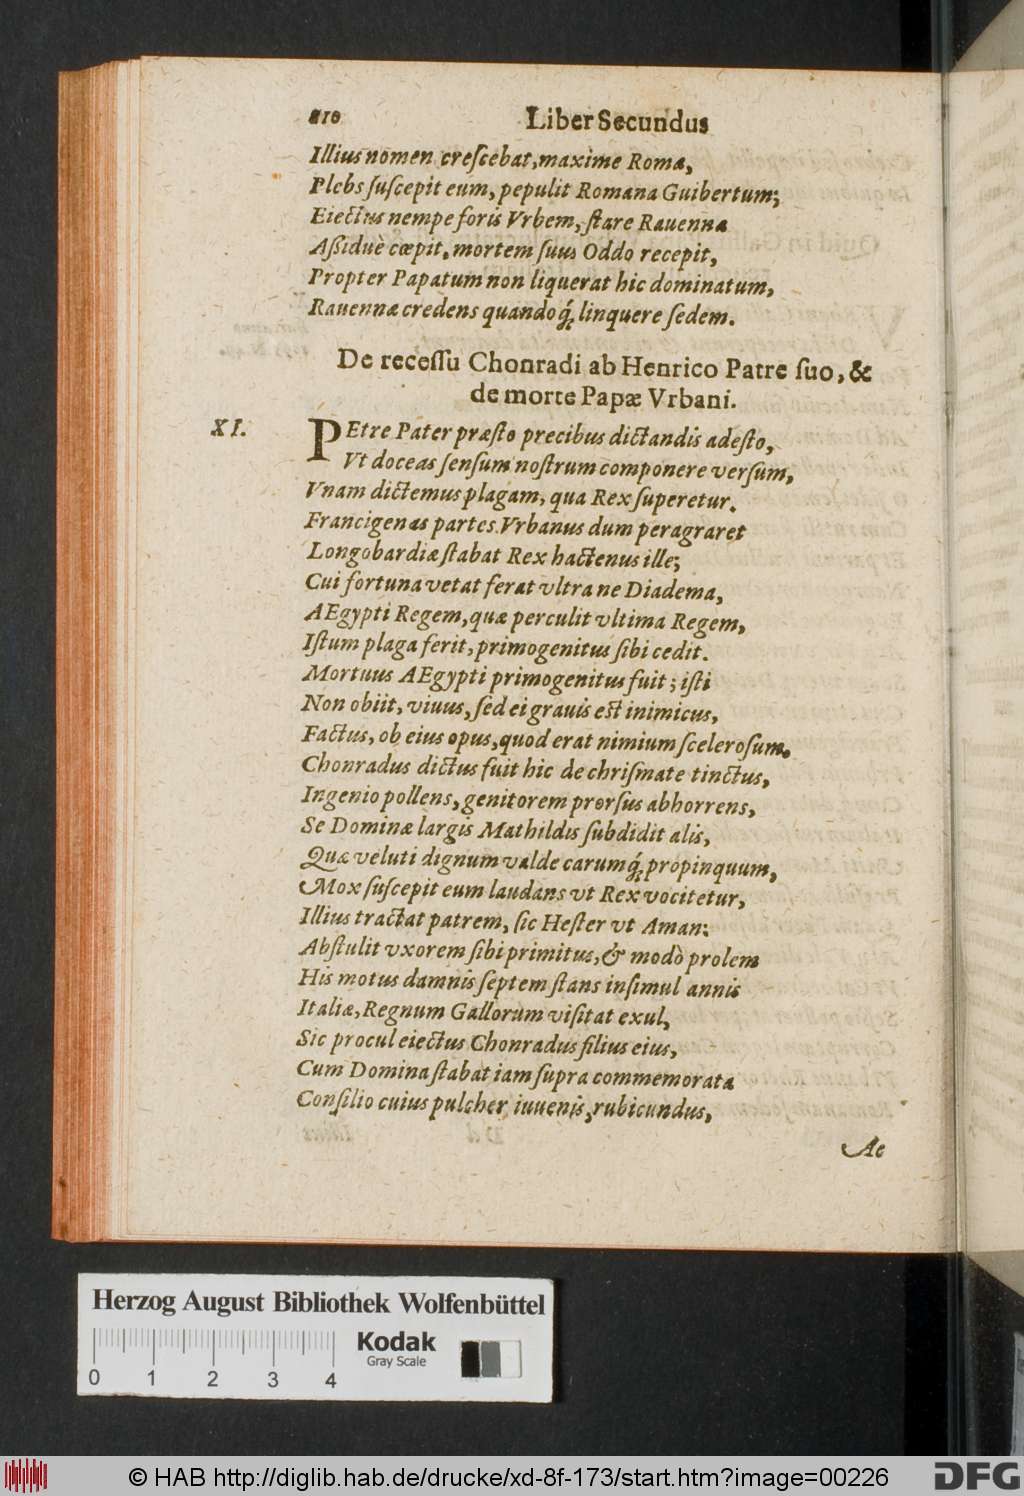 210 Liber Secundus
Illius nomen creſcebat, maxime Roma,
Plebs ſuſcepit eum, pepulit Romana Guibertum;
Eiectus nempe foris Vrbem, ſtare Rauenna
Aßiduè cœpit, mortem ſuus Oddo recepit,
Propter Papatum non liquerat hic dominatum,
Rauennæ credens quandoq́; linquere ſedem.
De receſſu Chonradi ab Henrico Patre ſuo, &
de morte Papæ Vrbani.
XI. PEtre Pater præſto precibus dictandis adeſto,
Vt doceas ſenſum noſtrum componere verſum,
Vnam dictemus plagam, qua Rex ſuperetur.
Francigenas partes Vrbanus dum peragraret
Longobardiæ ſtabat Rex hactenus ille;
Cui fortuna vetat ferat vltra ne Diadema,
AEgypti Regem, quæ perculit vltima Regem,
Iſtum plaga ferit, primogenitus ſibi cedit.
Mortuus AEgypti primogenitus fuit; iſti
Non obiit, viuus, ſed ei grauis est inimicus,
Factus, ob eius opus, quod erat nimium ſceleroſum.
Chonradus dictus fuit hic de chriſmate tinctus,
Ingenio pollens, genitorem prorſus abhorrens,
Se Dominæ largis Mathildis ſubdidit alis,
Quæ veluti dignum valde carumq́; propinquum,
Mox ſuſcepit eum laudans vt Rex vocitetur,
Illius tractat patrem, ſic Heſter vt Aman:
Abſtulit vxorem ſibi primitus, & modò prolem
His motus damnis ſeptem ſtans inſimul annis
Italiæ, Regnum Gallorum viſitat exul,
Sic procul eiectus Chonradus filius eius,
Cum Domina ſtabat iam ſupra commemorata
Conſilio cuius pulcher iuuenis, rubicundus,
Ac
Herzog August Bibliothek Wolfenbüttel
0 1 2 3 4
Kodak
Gray Scale
© HAB http://diglib.hab.de/drucke/xd-8f-173/start.htm?image=00226
DFG